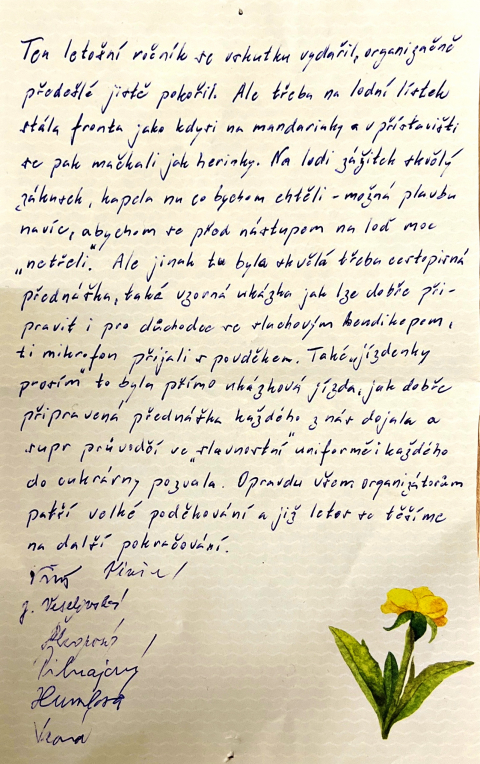 Ten letošní ročník se vskutku vydařil, organizačně
předešlé jistě pokořil. Ale třeba na lodní lístek
stála fronta jako kdysi na mandarinky a v přístavišti
se pak mačkali jak herinky. Na lodi zážitek skvělý
zákusek, kapela nu co bychom chtěli - možná plavbu
navíc, abychom se před nástupem na loď moc
„netřeli." Ale jinak tu byla skvělá třeba cestopisná
přednáška, také vzorná ukázka jak lze dobře při-
pravit i pro důchodce se sluchovým hendikepem,
ti mikrofon přijali s povděkem. Také „jízdenky
prosím" to byla přímo ukázková jízda, jak dobře
připravená přednáška každého z nás dojala a
supr průvodčí ve „slavnostní" uniformě i každého
do cukrárny pozvala. Opravdu všem organizátorům
patří velké poděkování a již letos se těšíme
na další pokračování.
Vrána